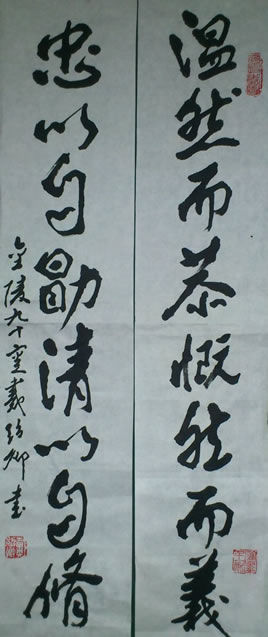 温然而恭慨然而義
忠以自勖清以自脩
金陵九十叟戴紹卿書